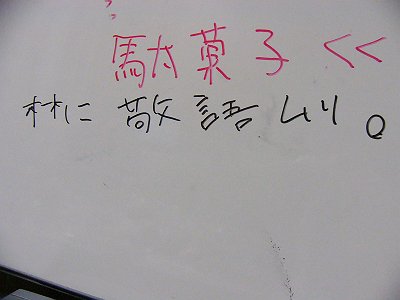 駄菓子 <<
林に敬語ムリ。